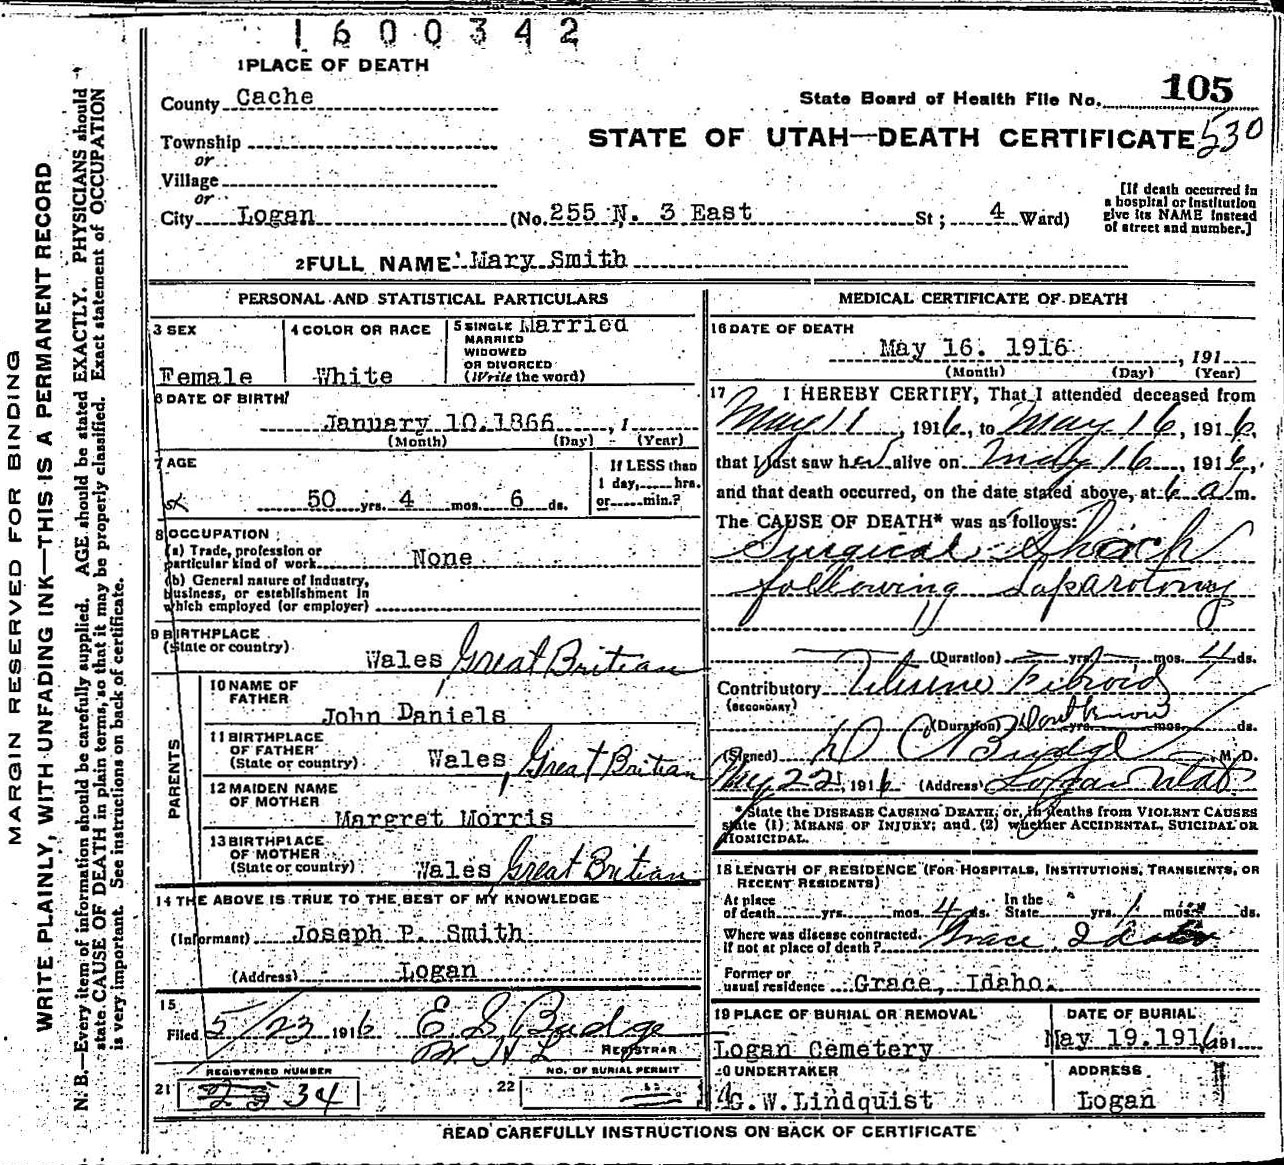 1600342
1 PLACE OF DEATH
County Cache
State Board of Health File No. 105
Township
STATE OF UTAH—DEATH CERTIFICATE 530
or
Village
or
City Logan (No. 255 N. 3 East St; 4 Ward)
[If death occurred in
a hospital or institution
give its NAME instead
of street and number.]
2 FULL NAME Mary Smith
PERSONAL AND STATISTICAL PARTICULARS
3 SEX
Female
4 COLOR OR RACE
White
5 SINGLE Married
MARRIED
WIDOWED
OR DIVORCED
(Write the word)
6 DATE OF BIRTH
January 10.1866, 1
(Month) (Day) (Year)
7 AGE
50 yrs. 4 mos. 6 ds.
If LESS than
1 day, hrs.
or min.?
8 OCCUPATION
(a) Trade, profession or
particular kind of work None
(b) General nature of Industry,
business, or establishment in
which employed (or employer)
9 BIRTHPLACE
(State or country)
Wales, Great Britian
PARENTS
10 NAME OF
FATHER
John Daniels
11 BIRTHPLACE
OF FATHER
(State or country) Wales, Great Britian
12 MAIDEN NAME
OF MOTHER
Margret Morris
13 BIRTHPLACE
OF MOTHER
(State or country) Wales Great Britian
14 THE ABOVE IS TRUE TO THE BEST OF MY KNOWLEDGE
(Informant) Joseph P. Smith
(Address) Logan
15
Filed 5/23 1916 E S Budge
REGISTRAR
REGISTERED NUMBER
21 34
NO. OF BURIAL PERMIT
22
MEDICAL CERTIFICATE OF DEATH
16 DATE OF DEATH
May 16. 1916, 191
(Month) (Day) (Year)
17 I HEREBY CERTIFY, That I attended deceased from
May 11, 1916, to May 16, 1916,
that I last saw her alive on May 16, 1916,
and that death occurred, on the date stated above, at 6 a.m.
The CAUSE OF DEATH* was as follows:
Surgical Shock
following Laparotomy
(Duration) yrs. mos. 4 ds.
Contributory Uterine Fibroid
(SECONDARY)
(Duration) Dont know yrs. mos. ds.
(Signed) D C Budge M. D.
May 22, 1916 (Address) Logan Utah
*State the DISEASE CAUSING DEATH; or, in deaths from VIOLENT CAUSES
state (1) MEANS OF INJURY; and (2) whether ACCIDENTAL, SUICIDAL OR
HOMICIDAL.
18 LENGTH OF RESIDENCE (FOR HOSPITALS, INSTITUTIONS, TRANSIENTS, OR
RECENT RESIDENTS)
At place
of death yrs. mos. 4 ds.
In the
State yrs. 1 mos. ds.
Where was disease contracted.
If not at place of death? Grace, Idaho
Former or
usual residence Grace, Idaho.
19 PLACE OF BURIAL OR REMOVAL
Logan Cemetery
DATE OF BURIAL
May 19.1916 191
20 UNDERTAKER
G.W.Lindquist
ADDRESS
Logan
READ CAREFULLY INSTRUCTIONS ON BACK OF CERTIFICATE
MARGIN RESERVED FOR BINDING
WRITE PLAINLY, WITH UNFADING INK—THIS IS A PERMANENT RECORD
N. B.—Every item of information should be carefully supplied. AGE should be stated EXACTLY. PHYSICIANS should
state CAUSE OF DEATH in plain terms, so that it may be properly classified. Exact statement of OCCUPATION
is very important. See instructions on back of certificate.